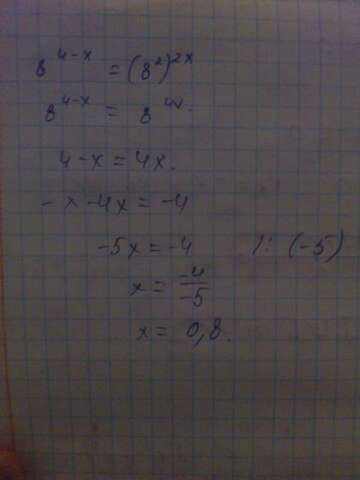 8^{4-x} = (8^2)^{2x}
8^{4-x} = 8^{4x}.
4-x = 4x.
-x -4x = -4
-5x = -4 /: (-5)
x = \frac{-4}{-5}
x = 0,8.